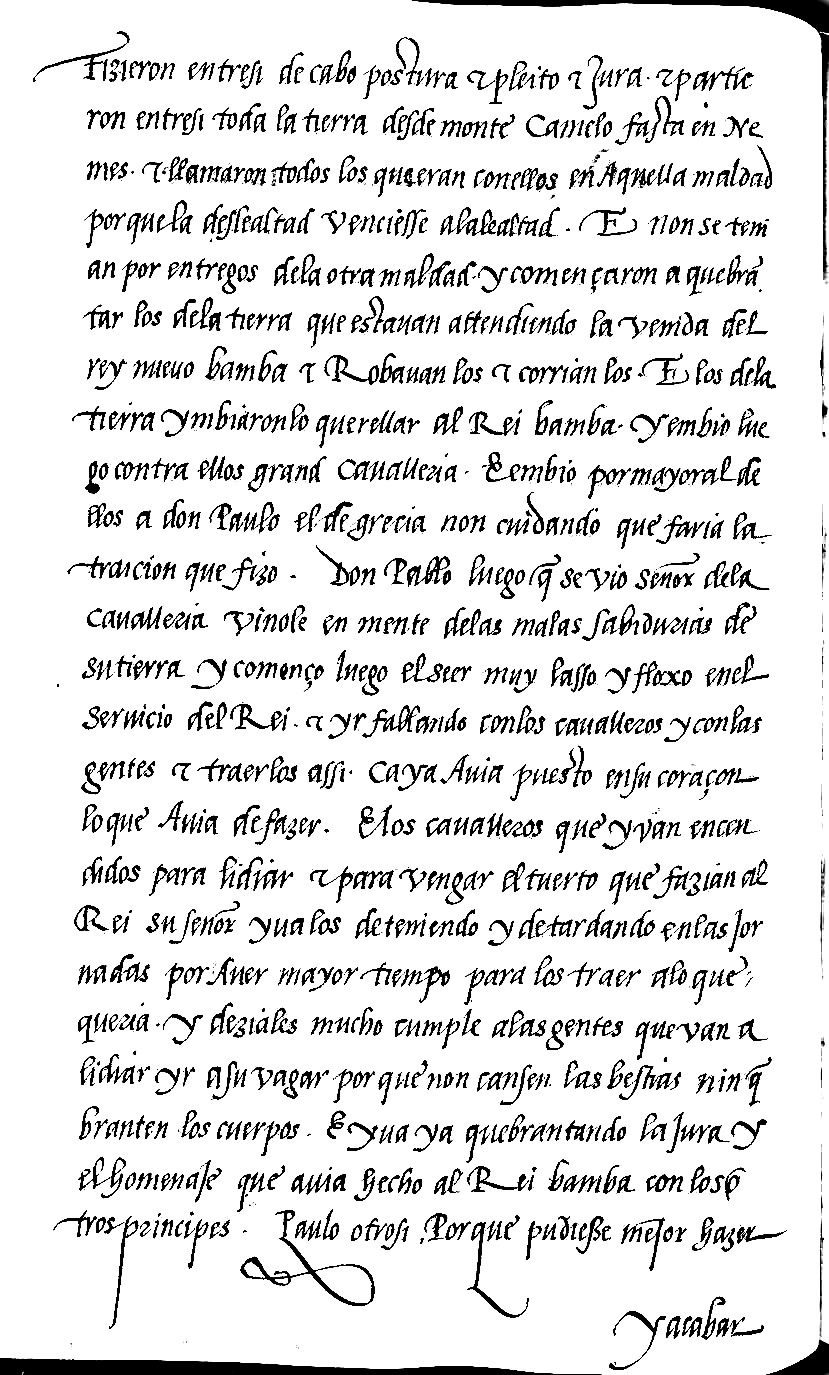 Fizieron entresi de cabo postura & pleito & Jura. & partie
ron entresi toda la tierra desde monte Camelo fasta en Ne
mes. & llamaron todos los que eran conellos en Aquella maldad
porque la deslealtad venciesse alalealtad. E non se teni
an por entregos dela otra maldad. y començaron a quebrā
tar los dela tierra que estauan attendiendo la venida del
rey nueuo bamba & Robauan los & corrian los. E los dela
tierra ymbiaronlo querellar al Rei bamba. Y embio lue
go contra ellos grand Caualleria. E embio por mayoral de
llos a don Paulo el de grecia non cuidando que faria la
traicion que fizo. Don Pablo luego q̃ se vio señor dela
Caualleria vinole en mente delas malas sabidurias de
su tierra y començo luego el seer muy lasso y floxo enel
seruicio del Rei. & yr fablando conlos caualleros y conlas
gentes & traerlos assi. Ca ya Auia puesto ensu coraçon
lo que Auia de fazer. E los caualleros que yvan encen
didos para lidiar & para vengar el tuerto que fazian al
Rei su señor yua los deteniendo y detardando enlas Jor
nadas por Auer mayor tiempo para los traer alo que
queria. Y deziales mucho cumple alas gentes que van a
lidiar yr asu vagar por que non cansen las bestias nin q̃
branten los cuerpos. E yua ya quebrantando la Jura y
el homenaje que auia hecho al Rei bamba con los o
tros principes. Paulo otrosi, Porque pudiesse mejor hazer
y acabar